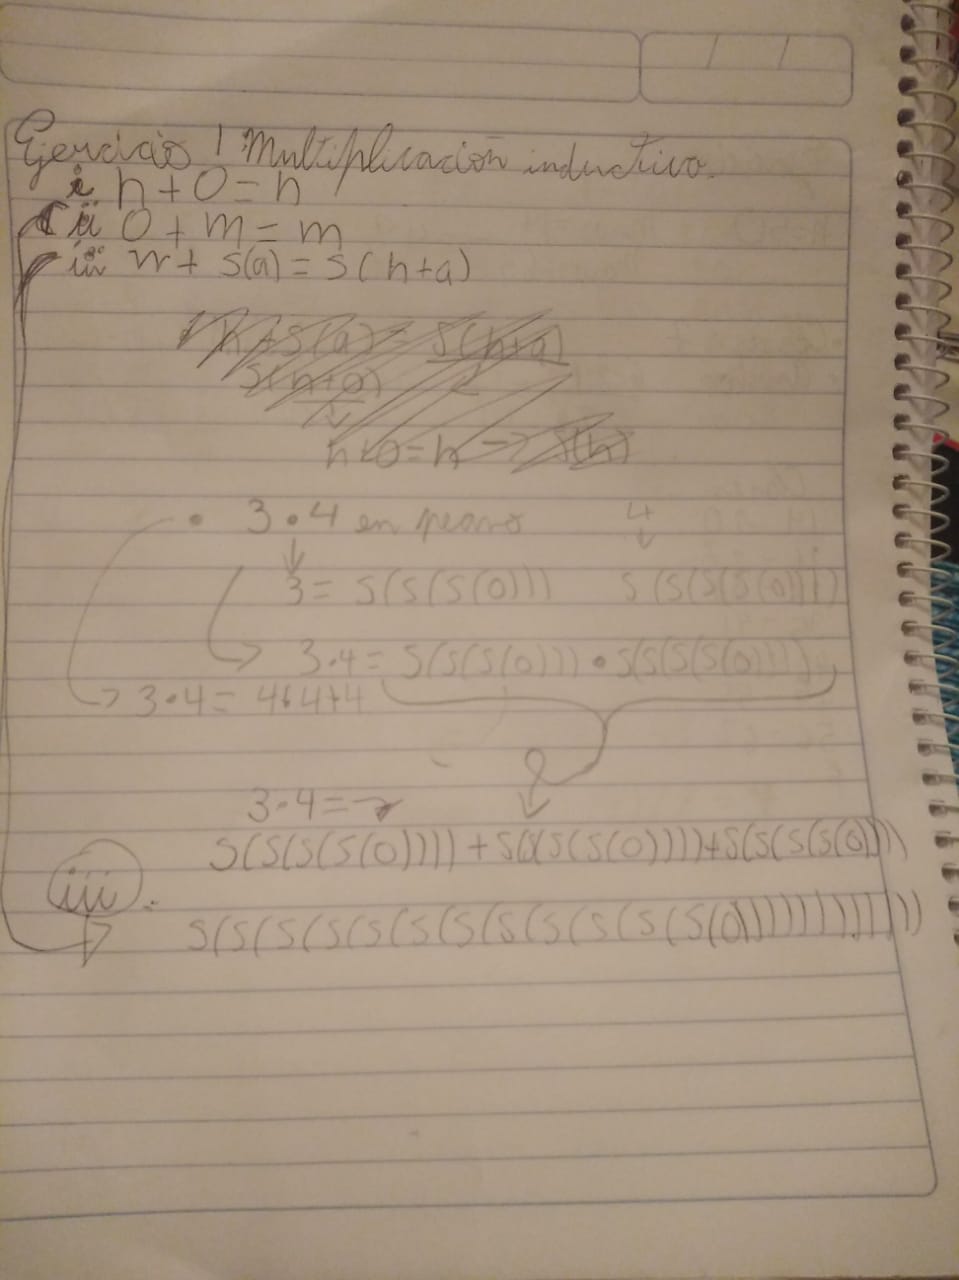 Ejercicio 1 Multiplicación inductiva.
i n + 0 = n
ii 0 + m = m
iii n + s(a) = s(n+a)
n+s(a) = s(n+a)
s(n+0)
n+0=n → s(n)
• 3•4 en peano 4
3 = s(s(s(0))) s(s(s(s(0))))
3•4 = s(s(s(0))) • s(s(s(s(0))))
→ 3•4 = 4+4+4
3•4 = →
s(s(s(s(0)))) + s(s(s(s(0)))) + s(s(s(s(0))))
iii.
s(s(s(s(s(s(s(s(s(s(s(s(0))))))))))))